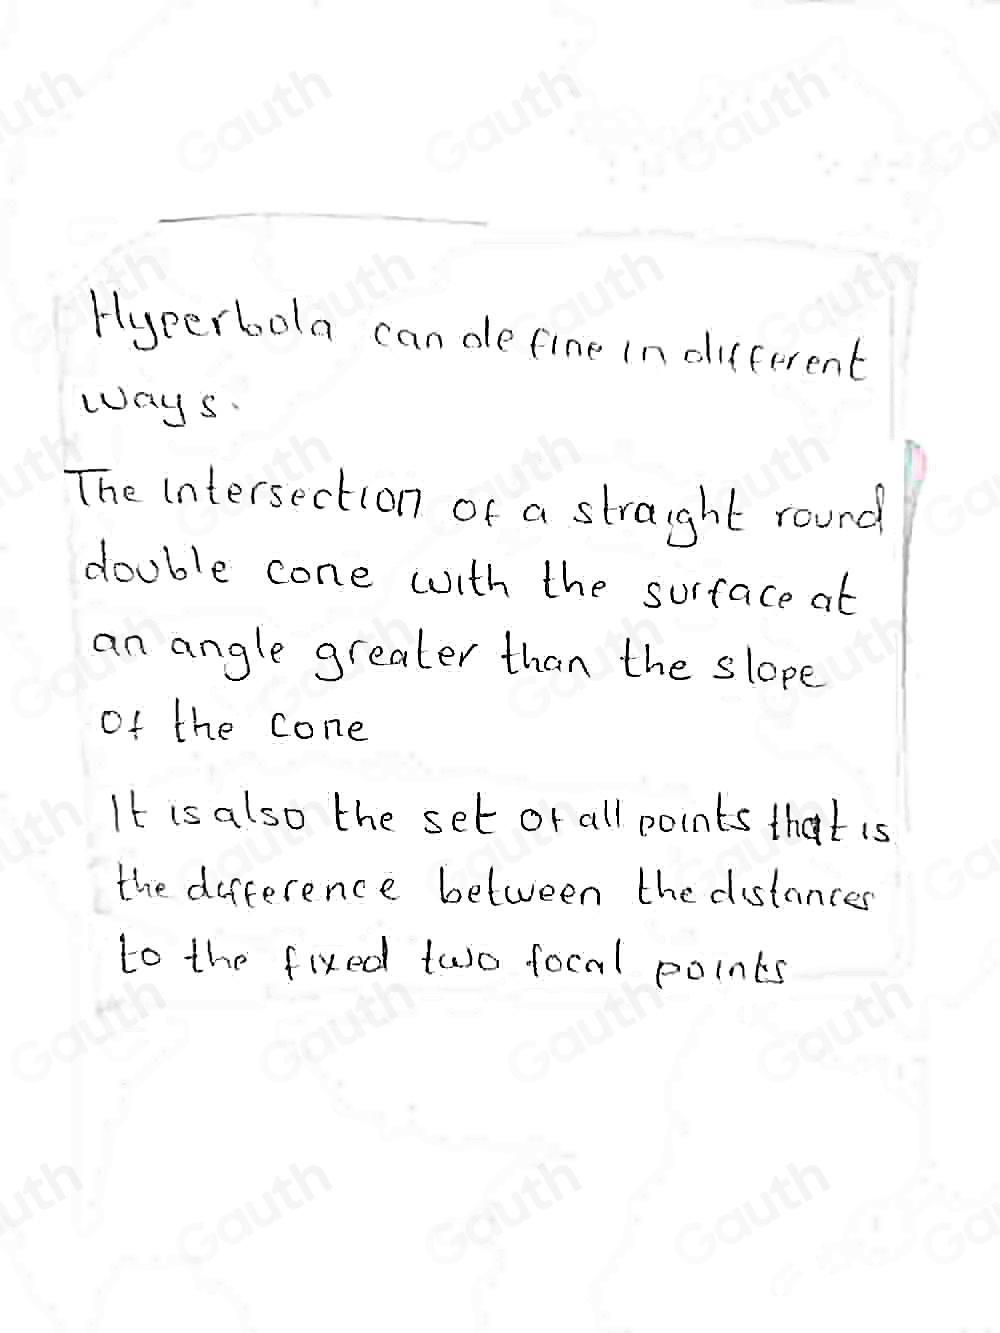 Hyperbola can define in different
ways.
The intersection of a straight round
double cone with the surface at
an angle greater than the slope
of the cone
It is also the set of all points that is
the difference between the distances
to the fixed two focal points